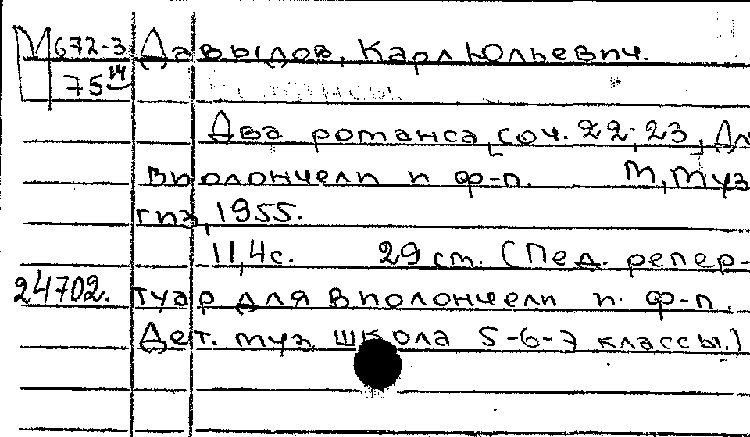 М 672-3 Давыдов, Карл Юльевич.
75 Романсы.
Два романса, [соч. 22; 23], Дл
виолончели и ф-п. М, Муз
гиз, 1955.
11,4с. 29 см. (Пед. репер-
24702. туар для виолончели и ф-п.
Дет. муз школа 5-6-7 классы.)